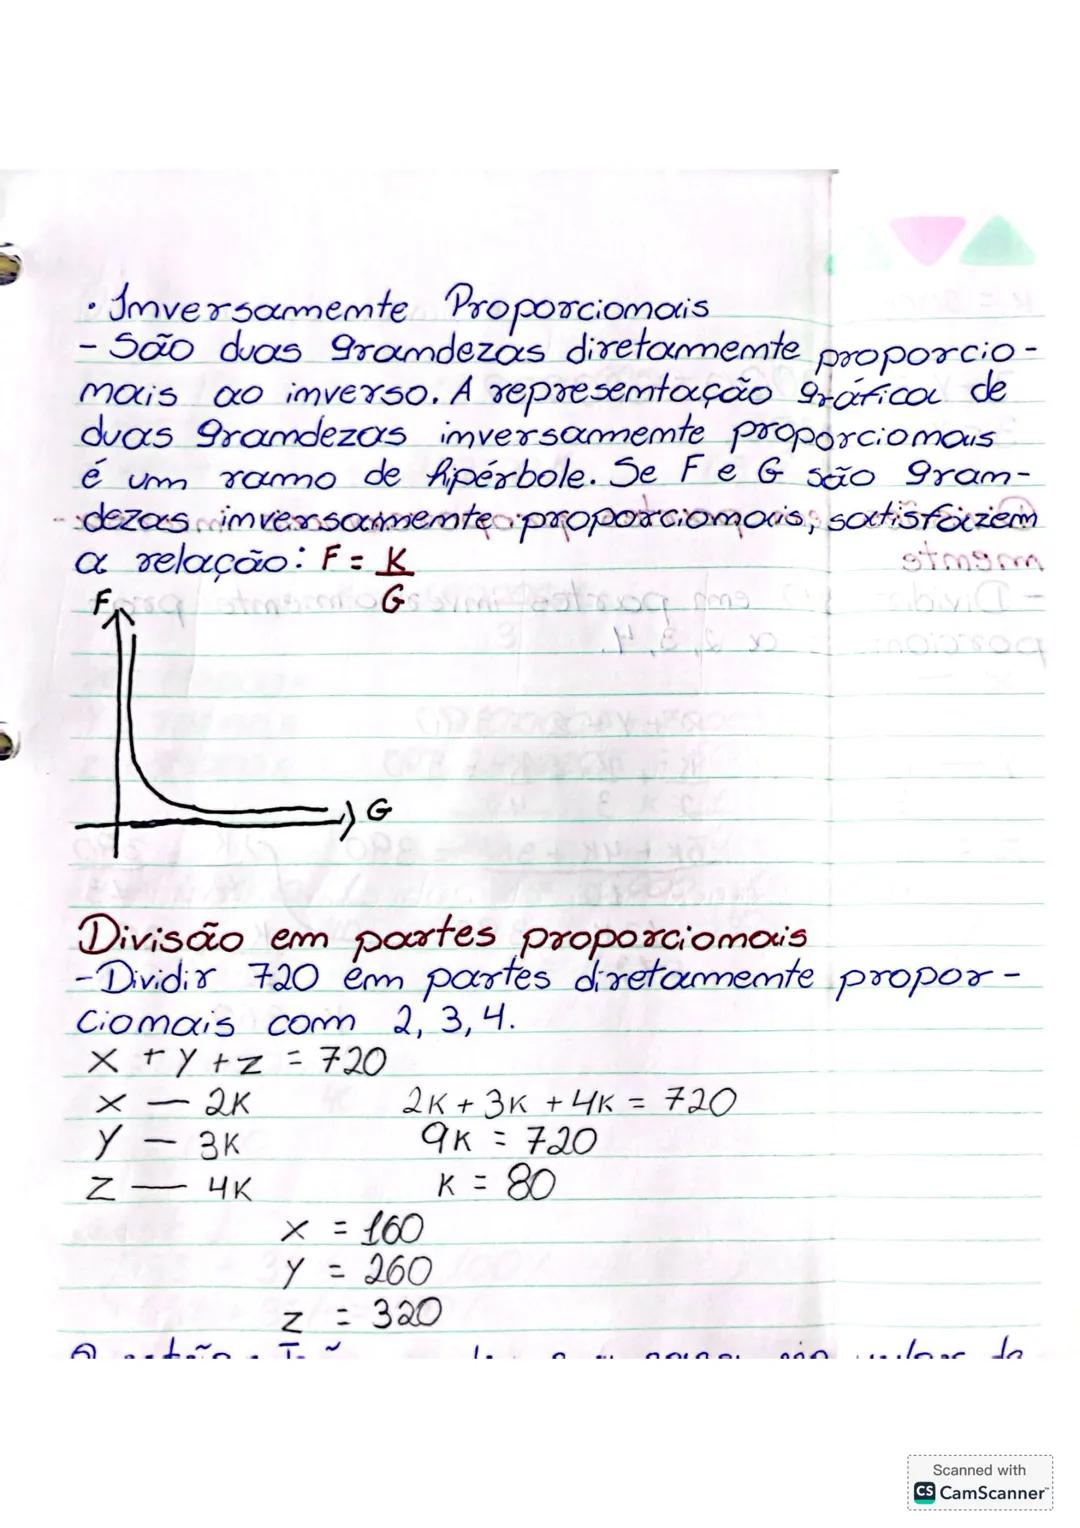 • Inversamente Proporcionais
- São duas grandezas diretamente proporcio-
nais ao inverso. A representação gráfica de
duas grandezas inversamente proporcionais
é um ramo de hipérbole. Se F e G são gran-
dezas inversamente proporcionais, satisfazem
a relação: F = K
G
F
G
Divisão em partes proporcionais
- Dividir 720 em partes diretamente propor-
cionais com 2, 3, 4.
x + y + z = 720
x — 2K 2K + 3K + 4K = 720
y — 3K 9K = 720
z — 4K K = 80
x = 160
y = 260
z = 320
Scanned with
CS CamScanner